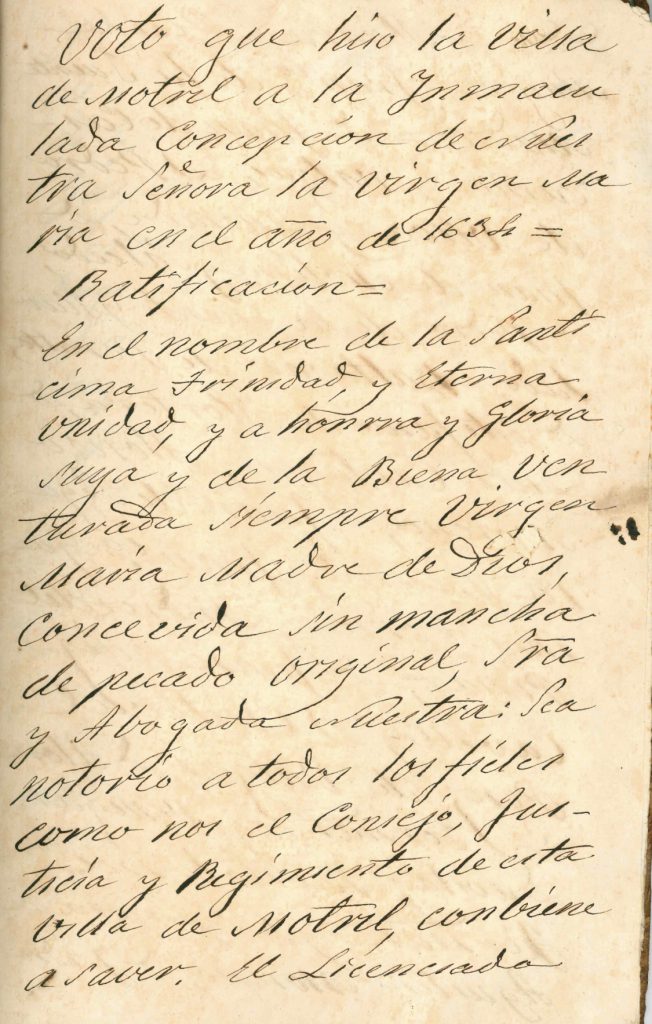 Voto que hiso la villa
de Motril a la Inmacu
lada Concepcion de Nues
tra Señora la Virgen Ma
ria en el año de 1634 =
Ratificacion=
En el nombre de la Santi
cima Trinidad, y Eterna
Unidad, y a honrra y Gloria
suya y de la Biena ven
turada siempre Virgen
Maria Madre de Dios,
Concevida sin mancha
de pecado original, Sra
y Abogada Nuestra: Sea
notorio a todos los fieles
como nos el Consejo, Jus-
ticia y Regimiento de esta
Villa de Motril, conbiene
a saver. El Licenciado